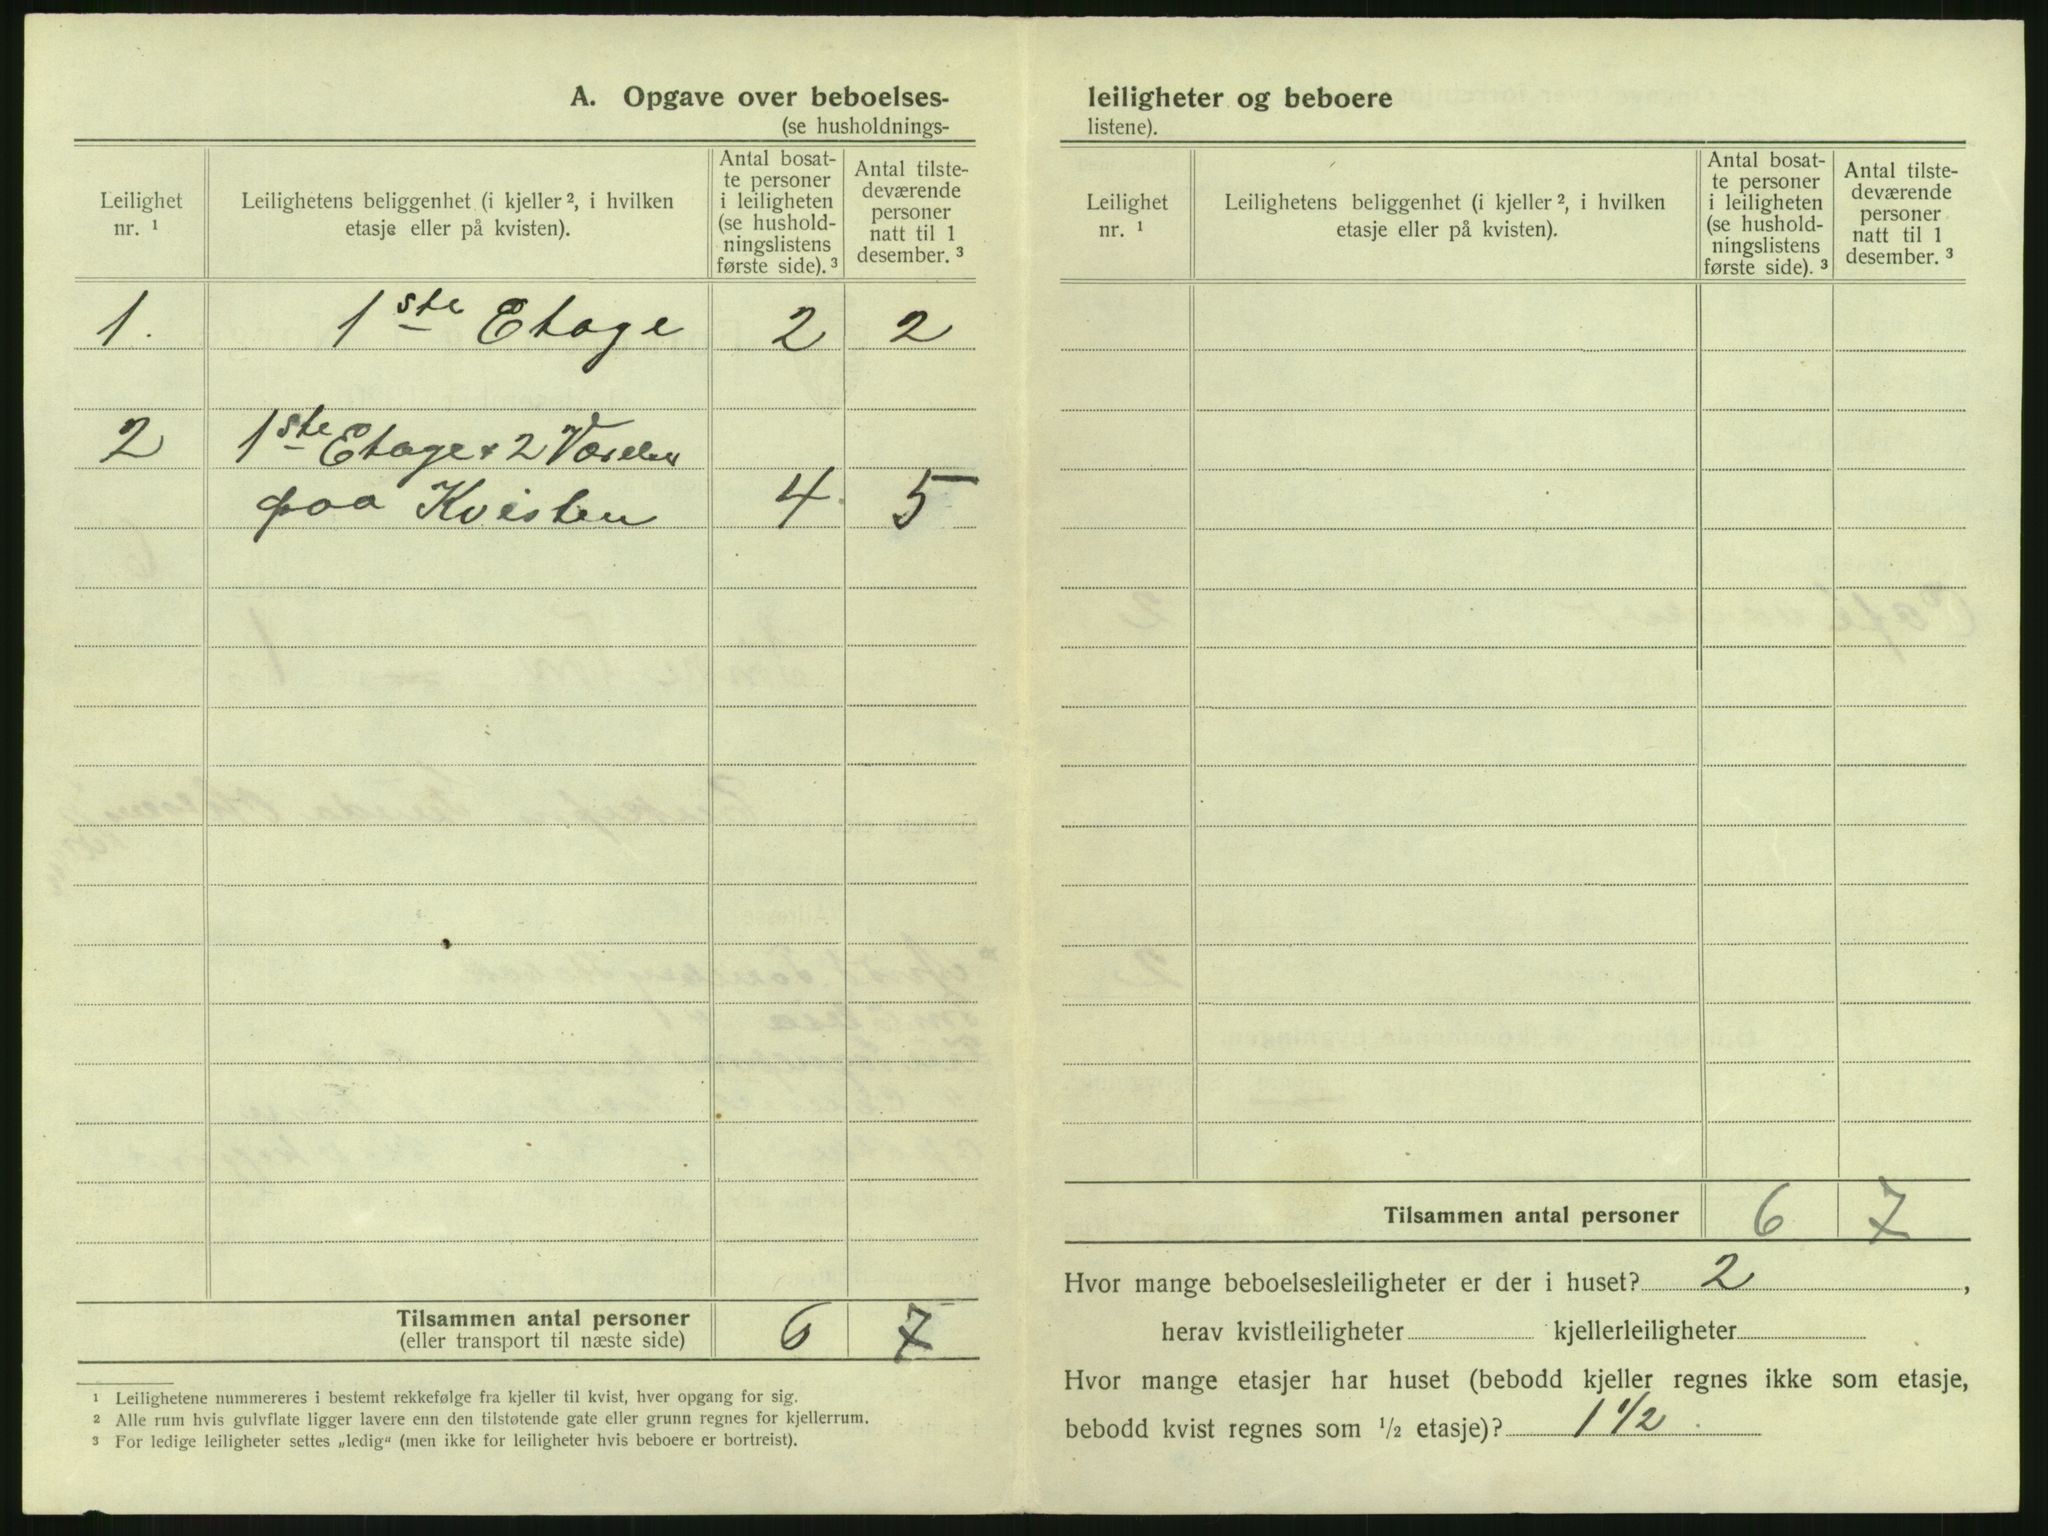 A. Opgave over beboelses-
(se husholdnings-
Leilighet nr. ¹
Leilighetens beliggenhet (i kjeller ², i hvilken
etasje eller på kvisten).
Antal bosat-
te personer
i leiligheten
(se hushold-
ningslistens
første side). ³
Antal tilste-
deværende
personer
natt til 1
desember. ³
1. 1ste Etage 2 2
2 1ste Etage + 2 Værelser
paa Kvisten 4 5
Tilsammen antal personer 6 7
(eller transport til næste side)
¹ Leilighetene nummereres i bestemt rekkefølge fra kjeller til kvist, hver opgang for sig.
² Alle rum hvis gulvflate ligger lavere enn den tilstøtende gate eller grunn regnes for kjellerrum.
³ For ledige leiligheter settes „ledig“ (men ikke for leiligheter hvis beboere er bortreist).
leiligheter og beboere
listene).
Leilighet nr. ¹
Leilighetens beliggenhet (i kjeller ², i hvilken
etasje eller på kvisten).
Antal bosat-
te personer
i leiligheten
(se hushold-
ningslistens
første side). ³
Antal tilste-
deværende
personer
natt til 1
desember. ³
Tilsammen antal personer 6 7
Hvor mange beboelsesleiligheter er der i huset? 2 ,
herav kvistleiligheter kjellerleiligheter
Hvor mange etasjer har huset (bebodd kjeller regnes ikke som etasje,
bebodd kvist regnes som ½ etasje)? 1 1/2 .